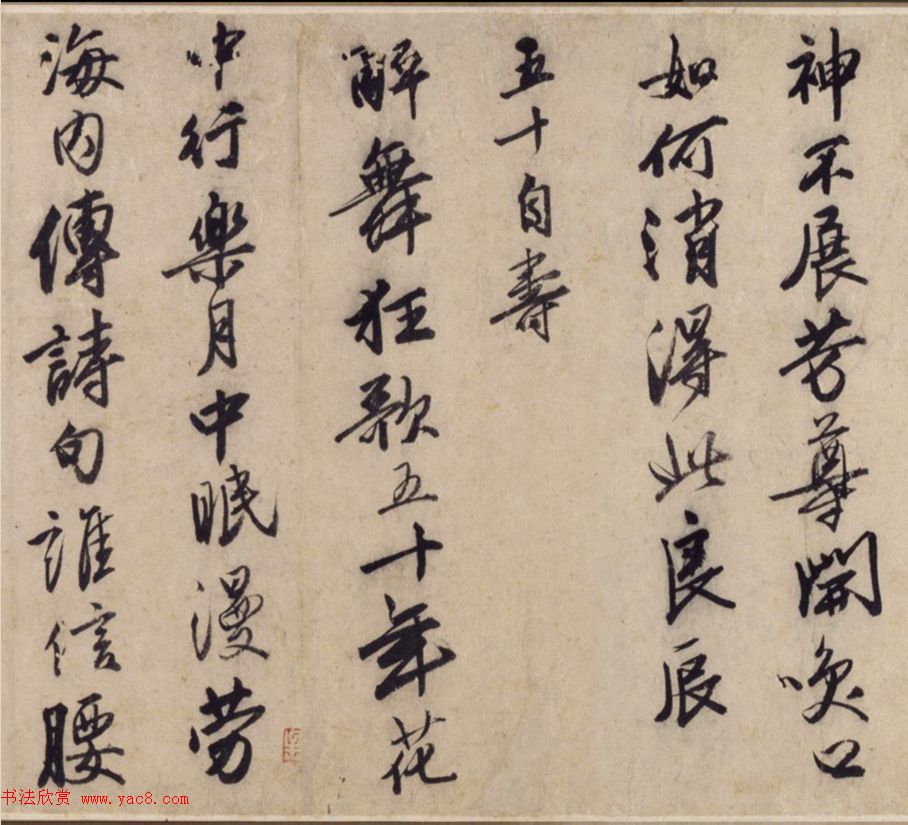 神不展芳尊開笑口
如何消得此良辰
五十自壽
醉舞狂歌五十年花
中行樂月中眠漫勞
海内傳詩句誰信腰
书法欣赏 www.yac8.com